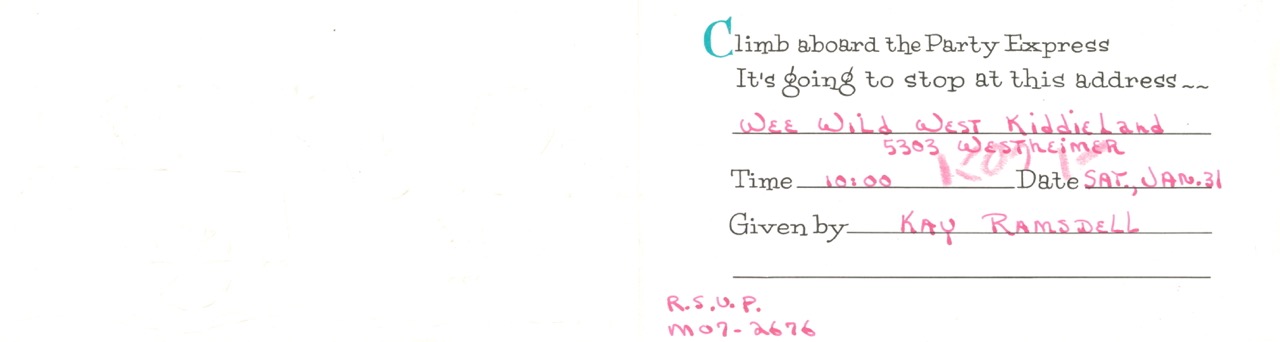 Climb aboard the Party Express
It's going to stop at this address~~
WEE WILD WEST KiddieLand
5303 WESTHEIMER
Time 10:00 Date SAT., JAN. 31
Given by KAY RAMSDELL
R.S.V.P.
MO7-2676